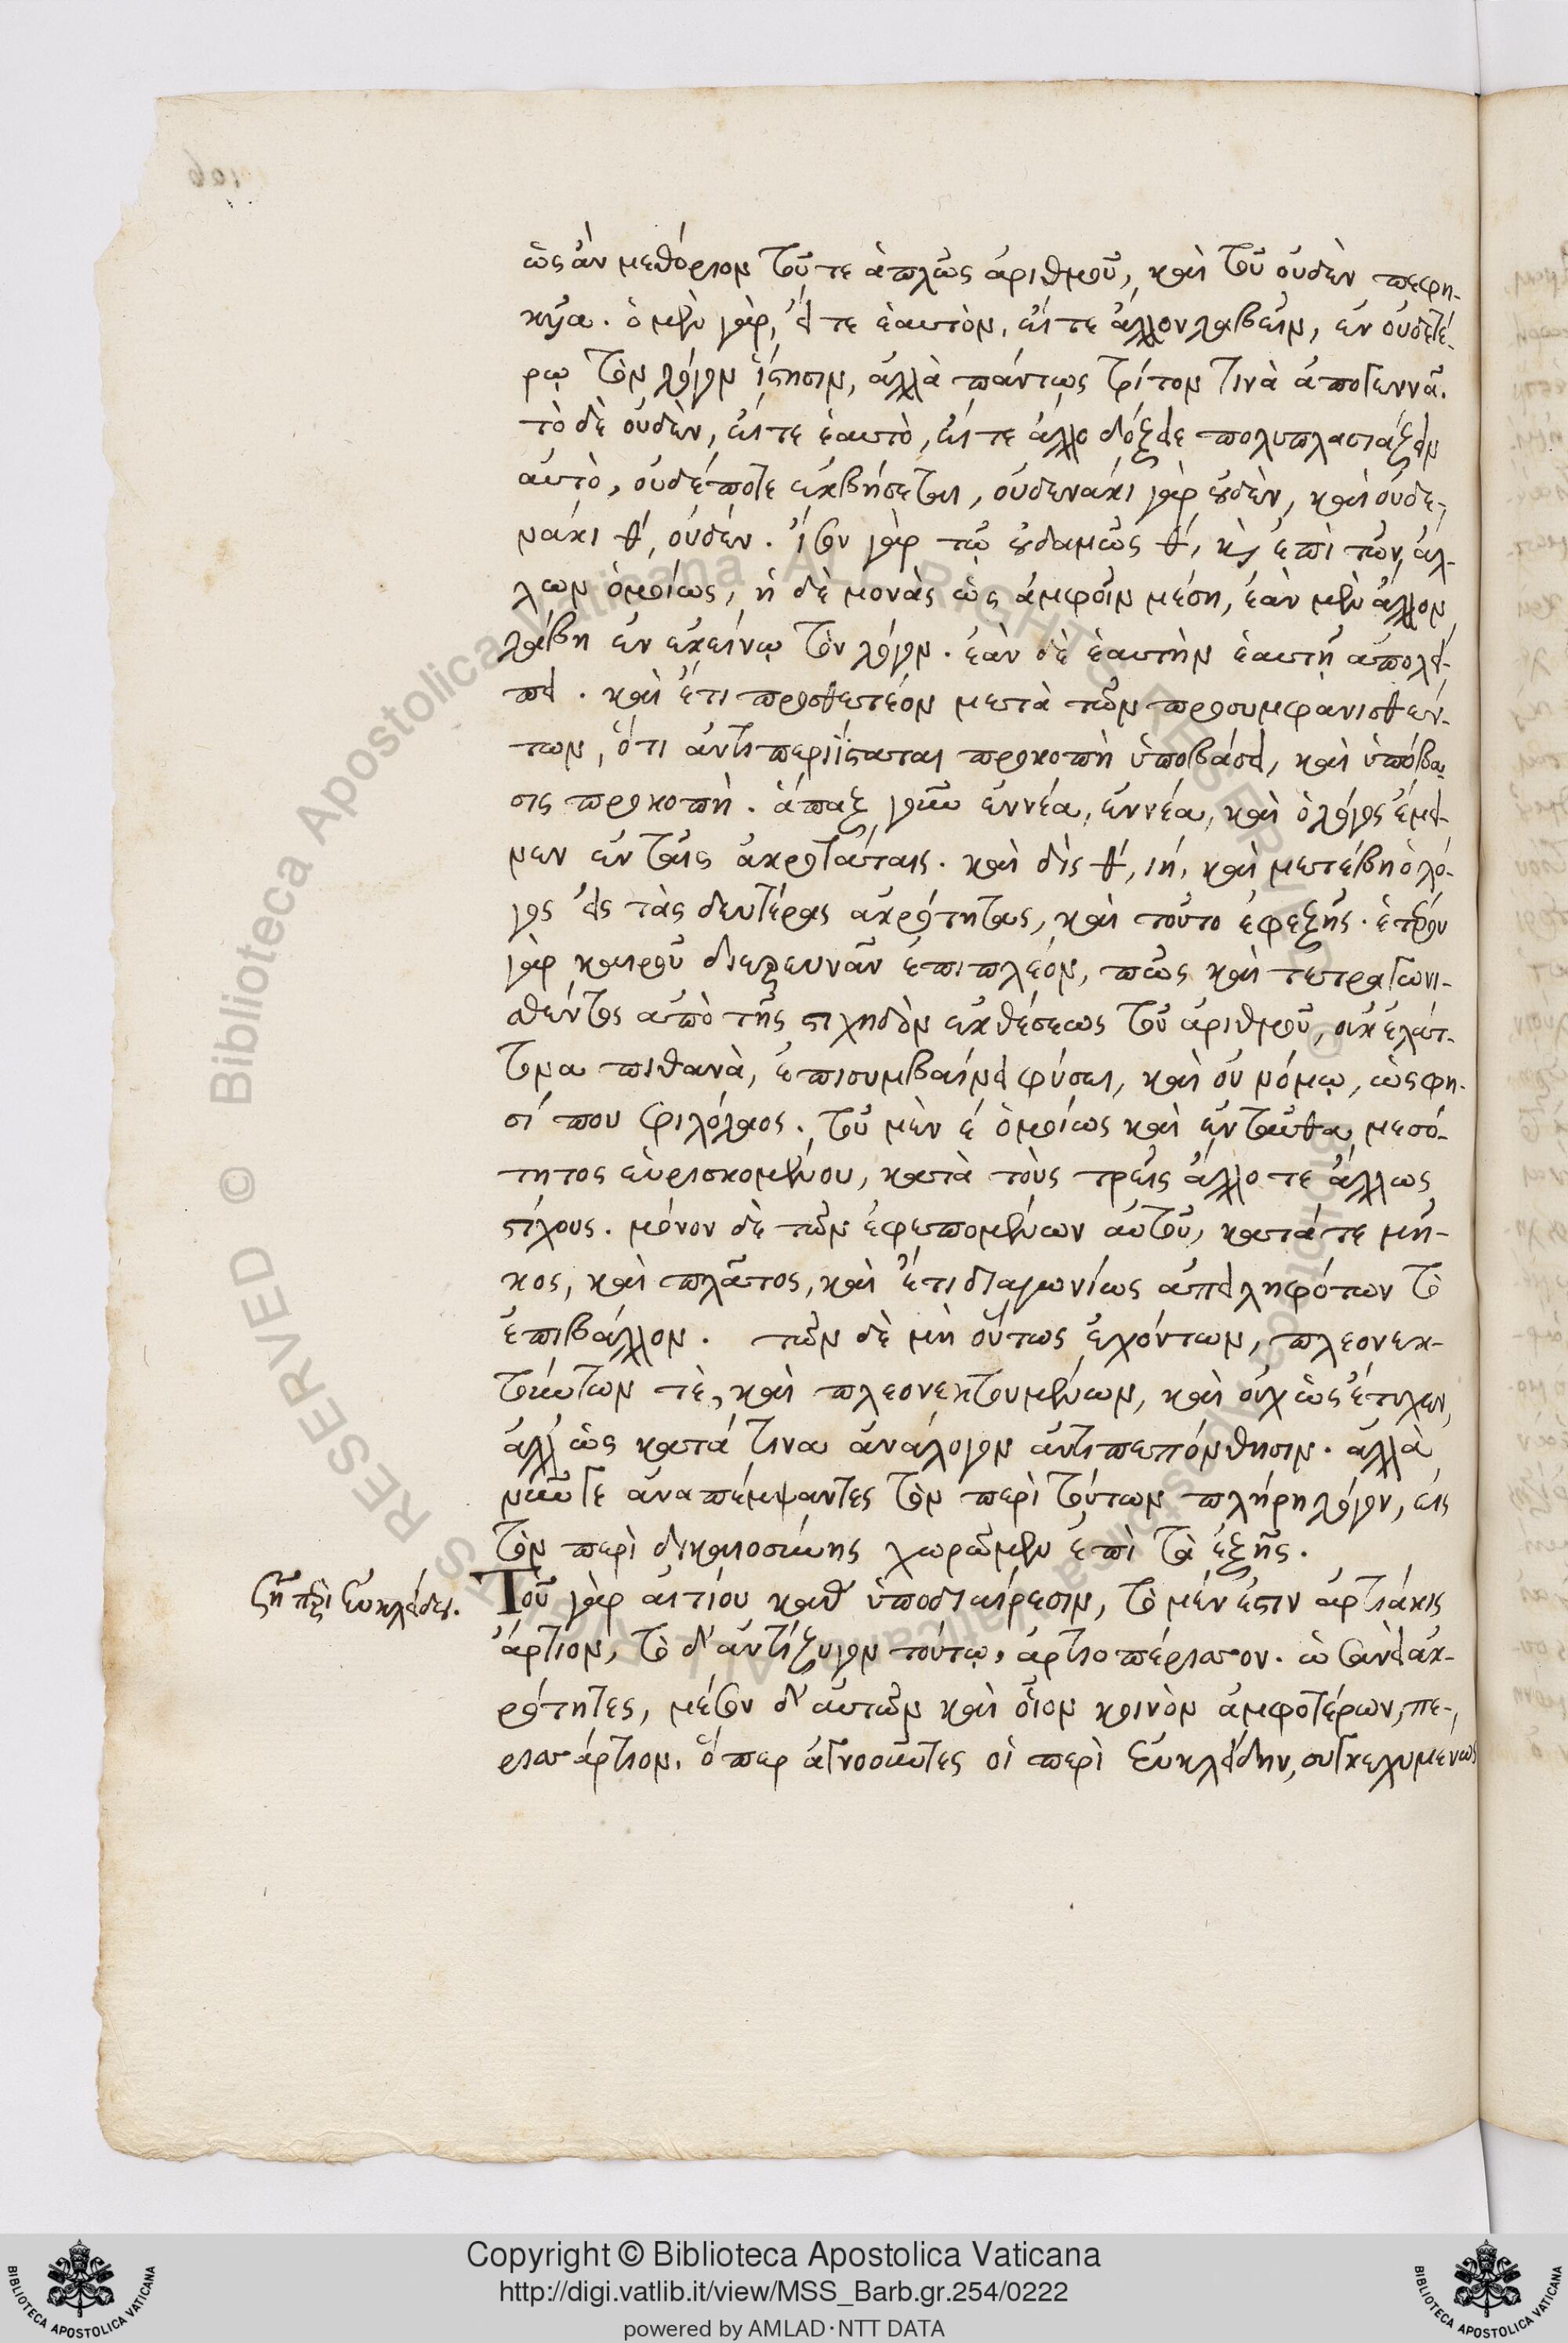 ὡς ἂν μεθόριον τοῦ τε ἁπλῶς ἀριθμοῦ, καὶ τοῦ οὐδὲν πεφη-
κυῖα. ὁ μὲν γὰρ, εἴ τε ἑαυτὸν, εἴ τε ἄλλον λαβεῖν, ἐν οὐδετέ-
ρῳ τὸν λόγον ἵστησιν, ἀλλὰ πάντως τρίτον τινὰ ἀπογεννᾶ.
τὸ δὲ οὐδὲν, εἴ τε ἑαυτὸ, εἴ τε ἄλλο δόξειε πολυπλασιάζειν
αὐτὸ, οὐδέποτε ἐκβήσεται, οὐδενάκι γὰρ οὐδὲν, καὶ οὐδε-
νάκι θ´, οὐδέν. ἴσον γὰρ τῷ οὐδαμῶς θ´, καὶ ἐπὶ τῶν ἄλ-
λων ὁμοίως, ἡ δὲ μονὰς ὡς ἀμφοῖν μέση, ἐὰν μὲν ἄλλον
λάβη ἐν ἐκείνῳ τὸν λόγον. ἐὰν δὲ ἑαυτὴν ἑαυτῇ ἀπολεί-
πει. καὶ ἔτι προσθετέον μετὰ τῶν προσεμφανισθέν-
των, ὅτι ἀντιπεριΐσταται προκοπὴ ὑποβάσει, καὶ ὑπόβα-
σις προκοπὴ. ἅπαξ γοῦν ἐννέα, ἐννέα, καὶ ὁ λόγος ἔμει-
νεν ἐν ταῖς ἀκροτάταις. καὶ δὶς θ´, ιή, καὶ μετέβη ὁ λό-
γος εἰς τὰς δευτέρας ἀκρότητας, καὶ τοῦτο ἐφεξῆς. ἑτέρου
γὰρ καιροῦ διερευνᾶν ἐπιπλέον, πῶς καὶ τετραγωνι-
σθέντος ἀπὸ τῆς στιχηδὸν ἐκθέσεως τοῦ ἀριθμοῦ, οὐκ ἐλάτ-
τονα πιθανὰ, ἐπισυμβαίνει φύσει, καὶ οὐ νόμῳ, ὡς φη-
σί που Φιλόλαος. τοῦ μὲν έ ὁμοίως καὶ ἐνταῦθα μεσό-
τητος εὑρισκομένου, κατὰ τοὺς τρεῖς ἄλλο τε ἄλλως
στίχους. μόνον δὲ τῶν ἐφεπομένων αὐτοῦ, κατά τε μῆ-
κος, καὶ πλάτος, καὶ ἔτι διαγωνίως ἀπειληφότων τὸ
ἐπιβάλλον. τῶν δὲ μὴ οὕτως ἐχόντων, πλεονεκ-
τούντων τὲ, καὶ πλεονεκτουμένων, καὶ οὐχ ὡς ἔτυχεν,
ἀλλ' ὡς κατά τινα ἀνάλογον ἀντιπεπόνθησιν. ἀλλὰ
νῦν τε ἀναπέμψαντες τὸν περὶ τούτων πλήρη λόγον, εἰς
τὸν περὶ δικαιοσύνης χωρῶμεν ἐπὶ τὰ ἑξῆς.
ζη περὶ Εὐκλείδου. Τοῦ γὰρ ἀρτίου καθ' ὑποδιαίρεσιν, τὸ μέν ἐστιν ἀρτιάκις
ἄρτιον, τὸ δ' ἀντίζυγον τούτῳ, ἀρτιοπέρισσον. ὡσανεὶ ἀκ-
ρότητες, μέσον δ' αὐτῶν καὶ οἷον κοινὸν ἀμφοτέρων, πε-
ρισσάρτιον. ὅπερ ἀγνοοῦντες οἱ περὶ Εὐκλείδην, συγκεχυμένως
Copyright © Biblioteca Apostolica Vaticana
http://digi.vatlib.it/view/MSS_Barb.gr.254/0222
powered by AMLAD·NTT DATA